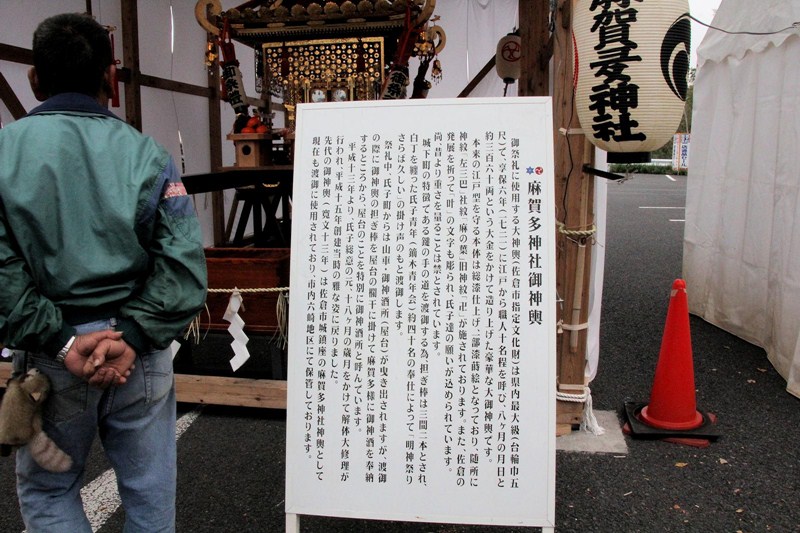 麻賀多神社御神輿
御祭礼に使用する大神輿(佐倉市指定文化財)は県内最大級(台輪巾五
尺)で、享保六年(一七二一)に江戸から職人十名程を呼び、八ヶ月の月日と
約三百六十両という大金をかけて造り上げた豪華な大御神輿です。
本来の江戸型を守る本体は総漆仕上げ、一部漆蒔絵となっており、随所に
神紋「左三巴」社紋「麻の葉」旧神紋「卍」が施されております。また、佐倉の
発展を祈って「叶」の文字も彫られ、氏子達の願いが込められています。
尚、昔より重さを量ることは禁とされています。
城下町の特徴である鍵の手の道を渡御する為、担ぎ棒は三間二本とされ、
白丁を纏った氏子青年(鏑木青年会)約四十名の奉仕によって「明神祭り
さらば久しい」の掛け声のもと渡御します。
祭礼中、氏子町からは山車・御神酒所(屋台)が曳き出されますが、渡御
の際に御神輿の担ぎ棒を屋台の欄干に掛けて麻賀多様に御神酒を奉納
するところから、屋台のことを特別に御神酒所と呼んでいます。
平成十三年より、氏子総意の元、十八ヶ月の歳月をかけて解体大修理が
行われ、平成十五年創建当時の雅な姿に戻りました。
先代の御神輿(寛文十三年)は佐倉市城鎮座の麻賀多神社神輿として
現在も渡御に使用されており、市内六崎地区にて保管しております。
麻賀多神社